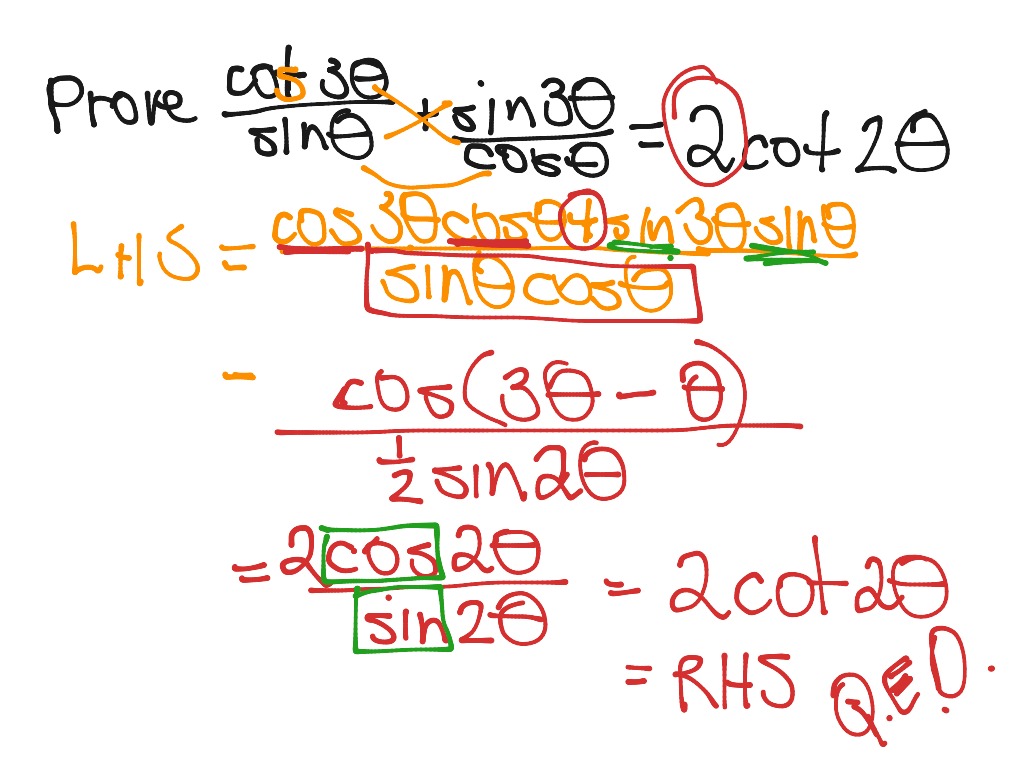 Prove cos 3θ/sinθ + sin3θ/cosθ = 2cot 2θ
LHS = cos3θcosθ + sin3θsinθ/sinθcosθ
- cos(3θ - θ)/½ sin2θ
= 2cos2θ/sin2θ = 2cot2θ
= RHS Q.E.D.